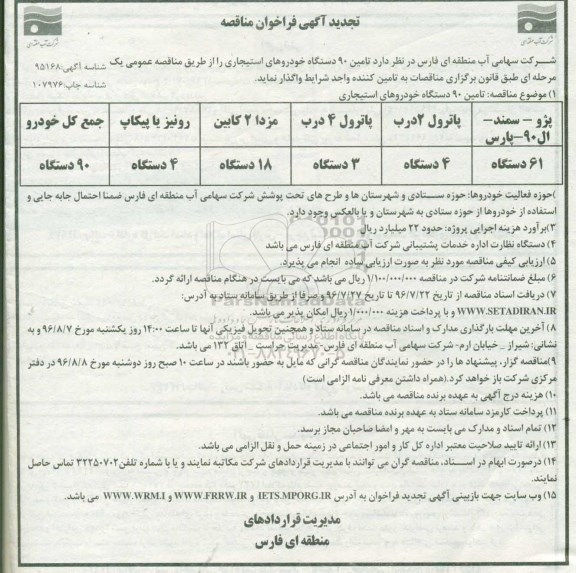 تجدید آگهی فراخوان مناقصه
شرکت سهامی آب منطقه ای فارس در نظر دارد تامین ۹۰ دستگاه خودروهای استیجاری را از طریق مناقصه عمومی یک
شناسه آگهی: ۹۵۱۶۸
مرحله ای طبق قانون برگزاری مناقصات به تامین کننده واجد شرایط واگذار نماید.
شناسه چاپ: ۱۰۷۹۷۶
۱) موضوع مناقصه: تامین ۹۰ دستگاه خودروهای استیجاری
پژو – سمند– ال۹۰–پارس | پاترول ۲درب | پاترول ۴ درب | مزدا ۲ کابین | رونیز یا پیکاپ | جمع کل خودرو
۶۱ دستگاه | ۴ دستگاه | ۳ دستگاه | ۱۸ دستگاه | ۴ دستگاه | ۹۰ دستگاه
)حوزه فعالیت خودروها: حوزه ستادی و شهرستان ها و طرح های تحت پوشش شرکت سهامی آب منطقه ای فارس ضمنا احتمال جابه جایی و
استفاده از خودروها از حوزه ستادی به شهرستان و یا بالعکس وجود دارد.
۳)برآورد هزینه اجرایی پروژه: حدود ۲۲ میلیارد ریال
۴) دستگاه نظارت اداره خدمات پشتیبانی شرکت آب منطقه ای فارس می باشد
۵) ارزیابی کیفی مناقصه مورد نظر به صورت ارزیابی ساده انجام می پذیرد.
۶) مبلغ ضمانتنامه شرکت در مناقصه ۱/۱۰۰/۰۰۰/۰۰۰ ریال می باشد که می بایست در هنگام مناقصه ارائه گردد.
۷) دریافت اسناد مناقصه از تاریخ ۹۶/۷/۲۲ تا تاریخ ۹۶/۷/۲۷ و صرفا از طریق سامانه ستاد به آدرس:
WWW.SETADIRAN.IR و با پرداخت هزینه ۱/۰۰۰/۰۰۰ ریال امکان پذیر می باشد.
۸) آخرین مهلت بارگذاری مدارک و اسناد مناقصه در سامانه ستاد و همچنین تحویل فیزیکی آنها تا ساعت ۱۴:۰۰ روز یکشنبه مورخ ۹۶/۸/۷ و به
نشانی: شیراز _ خیابان ارم- شرکت سهامی آب منطقه ای فارس- مدیریت حراست _ اتاق ۱۳۲ می باشد.
۹)مناقصه گزار، پیشنهاد ها را در حضور نمایندگان مناقصه گرانی که مایل به حضور باشند در ساعت ۱۰ صبح روز دوشنبه مورخ ۹۶/۸/۸ در دفتر
مرکزی شرکت باز خواهد کرد.(همراه داشتن معرفی نامه الزامی است)
۱۰) هزینه درج آگهی به عهده برنده مناقصه می باشد.
۱۱) پرداخت کارمزد سامانه ستاد به عهده برنده مناقصه می باشد.
۱۲) تمام اسناد و مدارک می بایست به مهر و امضا صاحبان مجاز برسد.
۱۳) ارائه تایید صلاحیت معتبر اداره کل کار و امور اجتماعی در زمینه حمل و نقل الزامی می باشد.
۱۴) درصورت ابهام در اسناد، مناقصه گران می توانند با مدیریت قراردادهای شرکت مکاتبه نمایند و یا با شماره تلفن ۳۲۲۵۰۷۰۲ تماس حاصل
نمایند.
۱۵) وب سایت جهت بازبینی آگهی تجدید فراخوان به آدرس IETS.MPORG.IR و WWW.FRRW.IR و WWW.WRM.I می باشد.
مدیریت قراردادهای
منطقه ای فارس